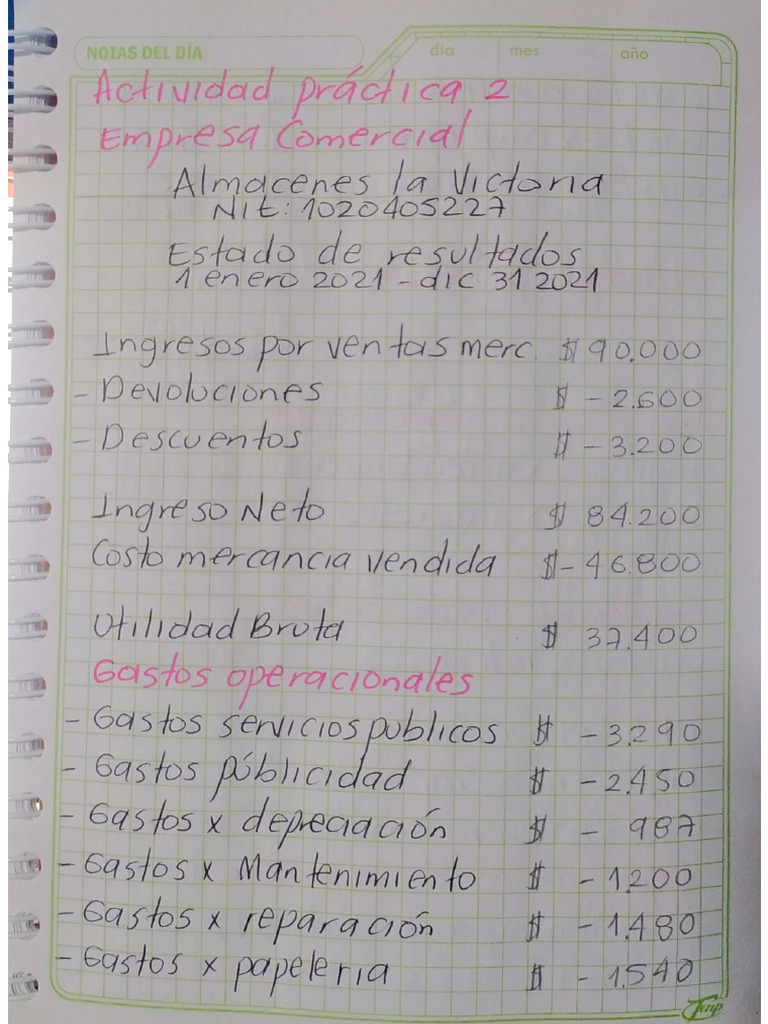 NOTAS DEL DÍA día mes año
Actividad práctica 2
Empresa Comercial
Almacenes la Victoria
Nit: 1020405227
Estado de resultados
1 enero 2021 - dic 31 2021
Ingresos por ventas merc. $ 90.000
- Devoluciones $ - 2.600
- Descuentos $ - 3.200
Ingreso Neto $ 84.200
Costo mercancia vendida $ - 46.800
Utilidad Bruta $ 37.400
Gastos operacionales
- Gastos servicios publicos $ - 3.290
- Gastos públicidad $ - 2.450
- Gastos x depreciación $ - 987
- Gastos x Mantenimiento $ - 1.200
- Gastos x reparación $ - 1.480
- Gastos x papeleria $ - 1.540